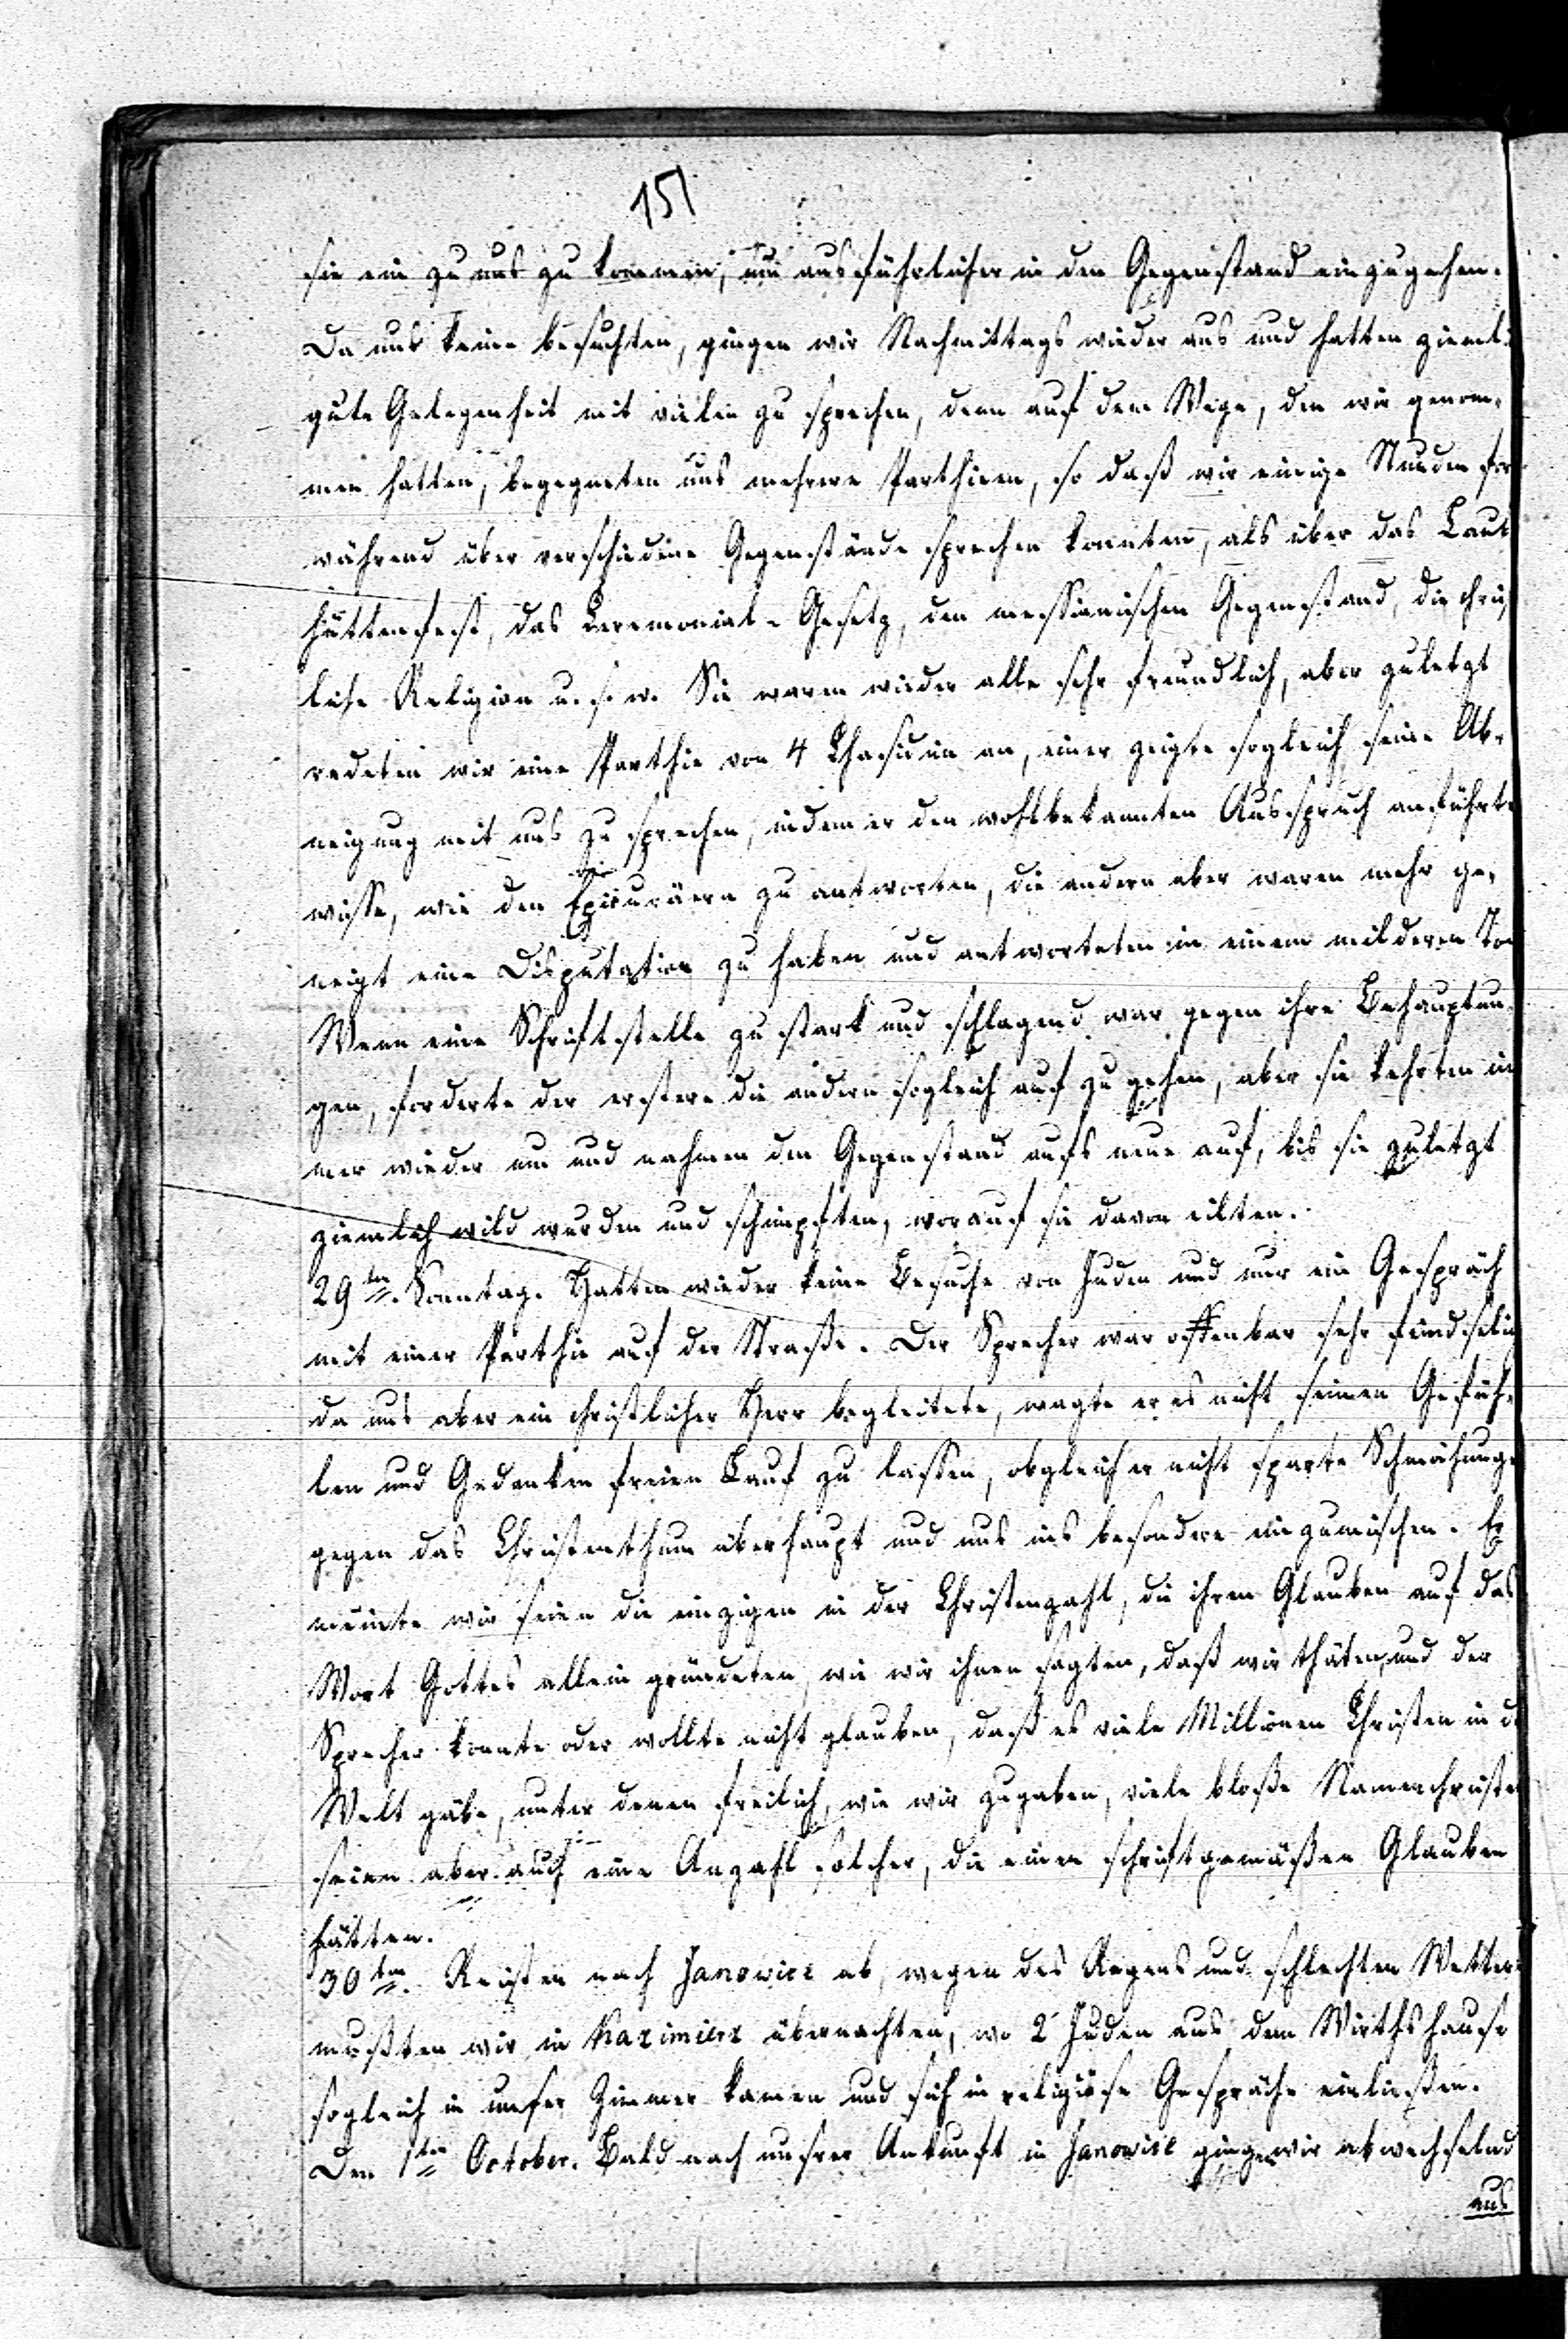 151
sie ein zu uns zu kommen, um ausführlicher in den Gegenstand einzugehen.
Da uns keine besuchten, gingen wir Nachmittags wieder aus und hatten ziemli
gute Gelegenheit mit vielen zu sprechen, denn auf dem Wege, den wir genom-
men hatten, begegneten uns mehrere Parthieen, so daß wir einige Stunden for
während über verschiedene Gegenstände sprechen konnten, als über das Laub
hüttenfest, das Ceremonial-Gesetz, den messianischen Gegenstand, die christ
liche Religion u. s. w. Sie waren wieder alle sehr freundlich, aber zuletzt
redeten wir eine Parthie von 4 Chasidim an, einer zeigte sogleich seine Ab-
neigung mit uns zu sprechen, indem er den wohlbekannten Ausspruch anführte
wisse, wie den Epicuräern zu antworten, die andern aber waren mehr ge-
neigt eine Disputation zu haben und antworteten in einem milderen To
Wenn eine Schriftstelle zu stark und schlagend war gegen ihre Behauptun
gen, forderte der erstere die andern sogleich auf zu gehen, aber sie kehrten im
mer wieder um und nahmen den Gegenstand aufs neue auf, bis sie zuletzt
ziemlich wild wurden und schimpften, worauf sie davon eilten.
29ten. Sonntag. Hatten wieder keine Besuche von Juden und nur ein Gespräch
mit einer Parthie auf der Straße. Der Sprecher war offenbar sehr feindselig
da uns aber ein christlicher Herr begleitete, wagte er es nicht seinen Gefüh-
len und Gedanken freien Lauf zu lassen, obgleich er nicht sparte Schmähunge
gegen das Christenthum überhaupt und uns ins besondere einzumischen. Er
meinte wir seien die einzigen in der Christenzahl, die ihren Glauben auf das
Wort Gottes allein gründeten, wie wir ihnen sagten, daß wir thäten, und der
Sprecher konnte oder wollte nicht glauben, daß es viele Millionen Christen in d
Welt gäbe, unter denen freilich, wie wir zugaben, viele bloße Namenchriste
seien aber auch eine Anzahl solcher, die einen schriftgemäßen Glauben
hätten.
30ten. Reisten nach Janowice ab, wegen des Regens und schlechten Wetter
mußten wir in Kazimierz übernachten, wo 2 Juden aus dem Wirthshause
sogleich in unser Zimmer kamen und sich in religiöse Gespräche einließen.
Den 1ten October. Bald nach unsrer Ankunft in Janowice gingen wir abwechselnd
aus